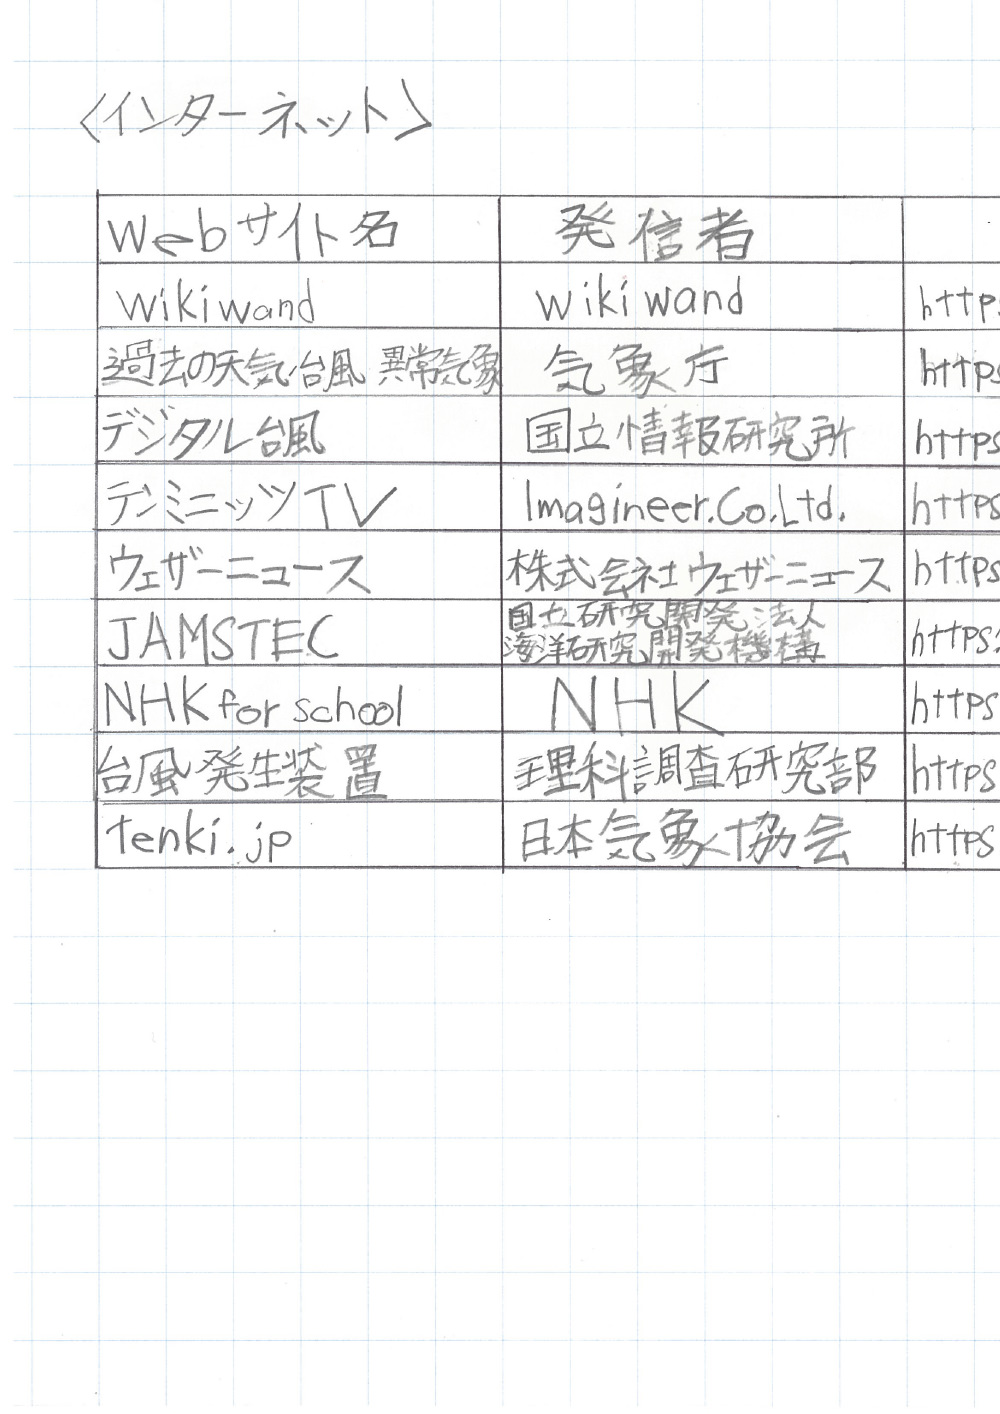 〈インターネット〉
Webサイト名 発信者
wikiwand wikiwand http
過去の天気・台風 異常気象 気象庁 https
デジタル台風 国立情報研究所 https
テンミニッツTV Imagineer.Co.Ltd. https
ウェザーニュース 株式会社ウェザーニュース https
JAMSTEC 国立研究開発法人
海洋研究開発機構 https:
NHK for school NHK https
台風発生装置 理科調査研究部 https
tenki.jp 日本気象協会 https